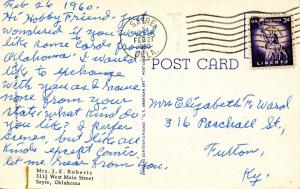 Feb 26 1960.
Hi Hobby Friend: Just
wondered if you would
like some cards from
Oklahoma. I would
like to exchange
with you as I have
none from your
state. What kind do
you like? I prefer
scenes, but like all
kinds except Comic.
let me hear from you.
Mrs. J. E. Roberts
311½ West Main Street
Sayre, Oklahoma
SAYRE
FEB 27
1960
OKLA.
U.S. POSTAGE
3¢
LIBERTY
POST CARD
Mrs Elizabeth F. Ward
316 Paschall St,
Fulton,
Ky.